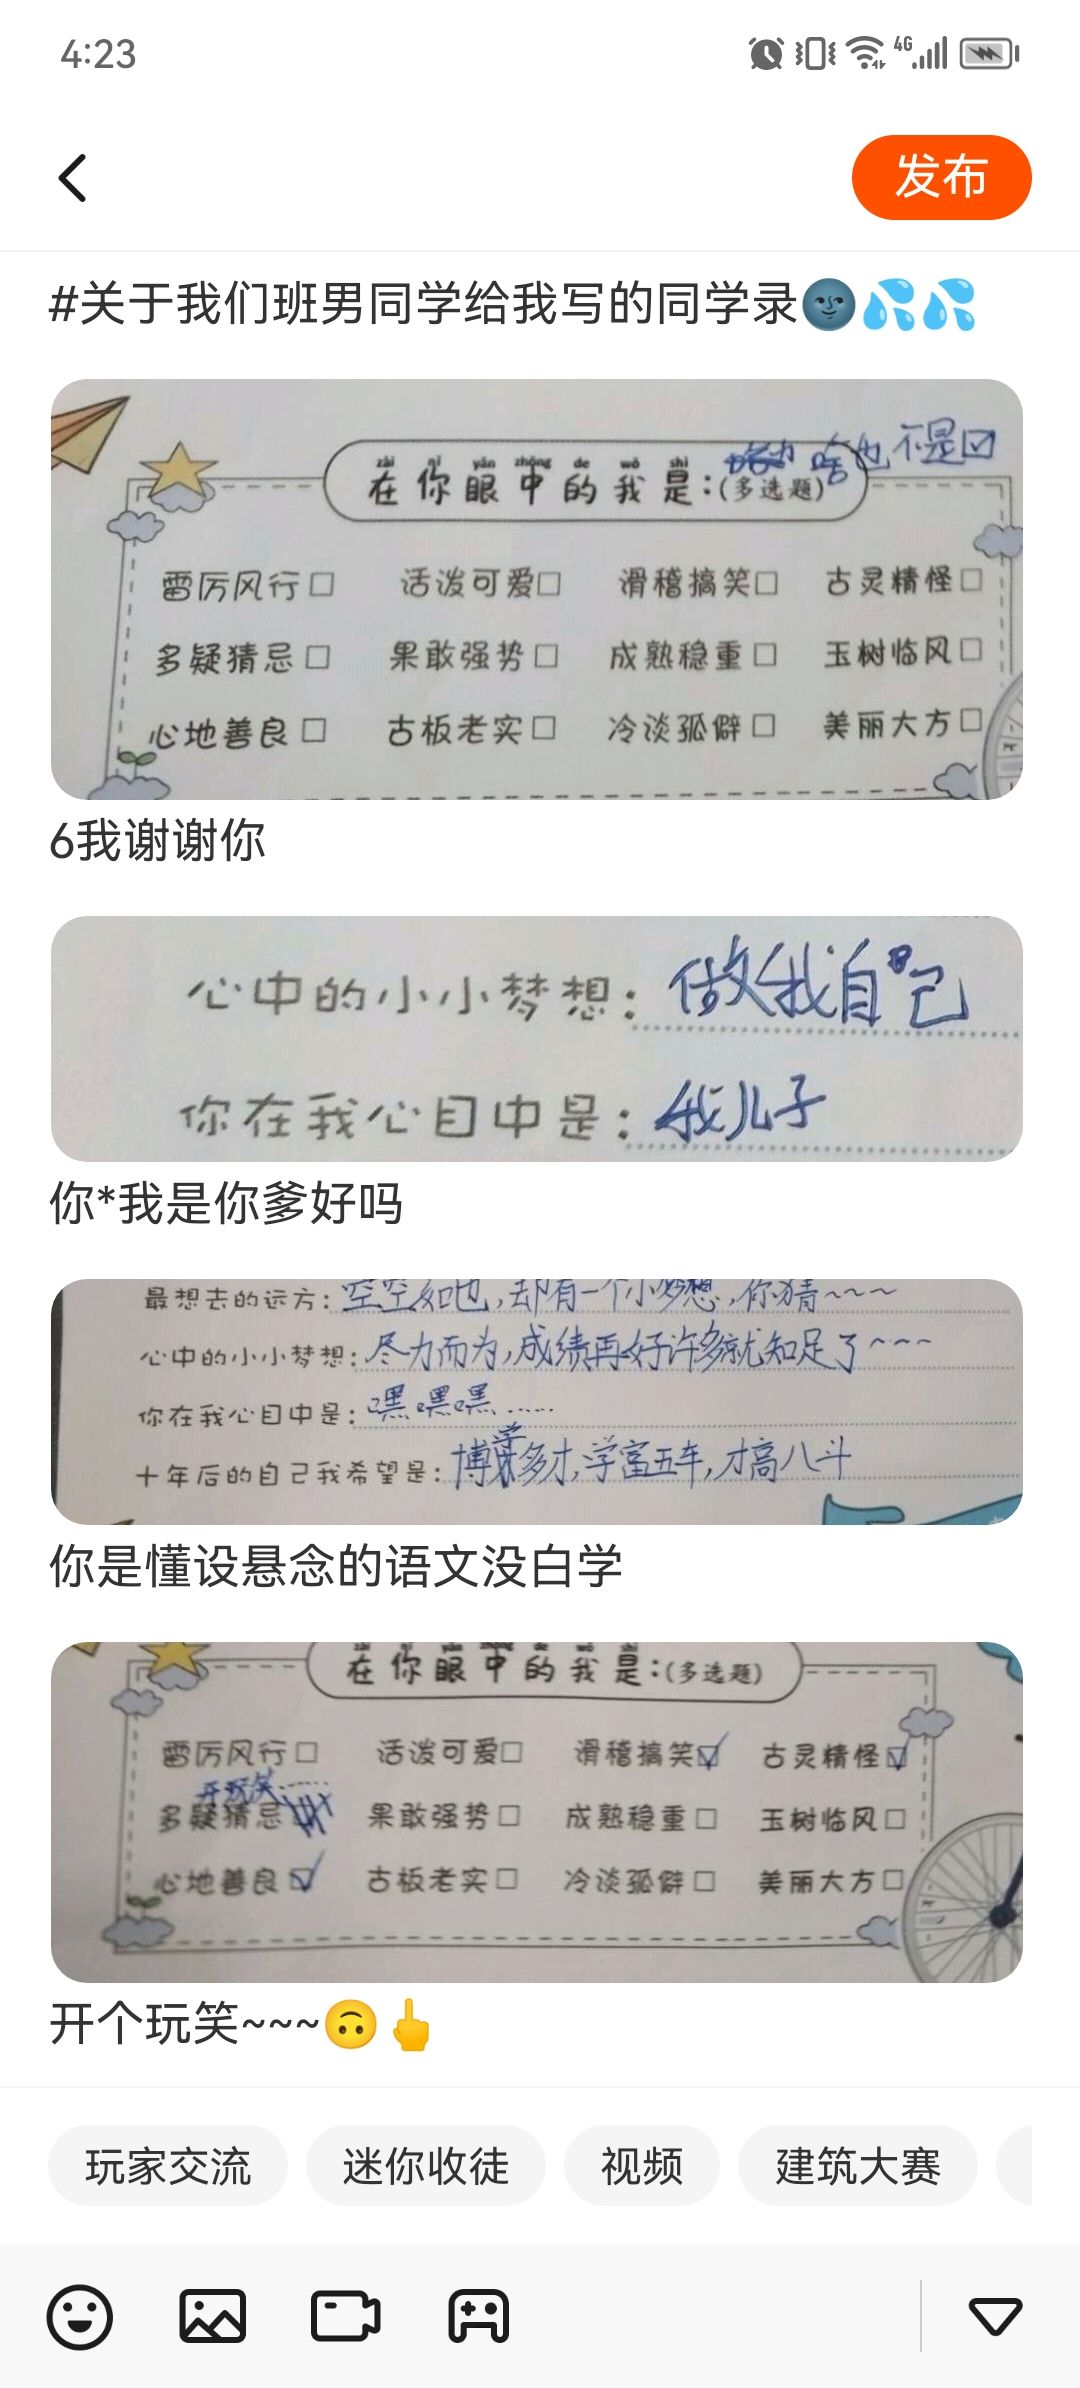 4:23
4G
发布
#关于我们班男同学给我写的同学录
啥也不是☑
zài nǐ yǎn zhōng de wǒ shì
在你眼中的我是:(多选题)
雷厉风行□ 活泼可爱□ 滑稽搞笑□ 古灵精怪□
多疑猜忌□ 果敢强势□ 成熟稳重□ 玉树临风□
心地善良□ 古板老实□ 冷淡孤僻□ 美丽大方□
6我谢谢你
心中的小小梦想:做我自己
你在我心目中是:我儿子
你*我是你爹好吗
最想去的远方:空空如也,却有一个小梦想,你猜~~~
心中的小小梦想:尽力而为,成绩再好许多就知足了~~~
你在我心目中是:嘿嘿嘿……
十年后的自己我希望是:博学多才,学富五车,才高八斗
你是懂设悬念的语文没白学
在你眼中的我是:(多选题)
雷厉风行□ 活泼可爱□ 滑稽搞笑☑ 古灵精怪☑
开玩笑……
多疑猜忌 果敢强势□ 成熟稳重□ 玉树临风□
心地善良☑ 古板老实□ 冷淡孤僻□ 美丽大方□
开个玩笑~~~
玩家交流 迷你收徒 视频 建筑大赛